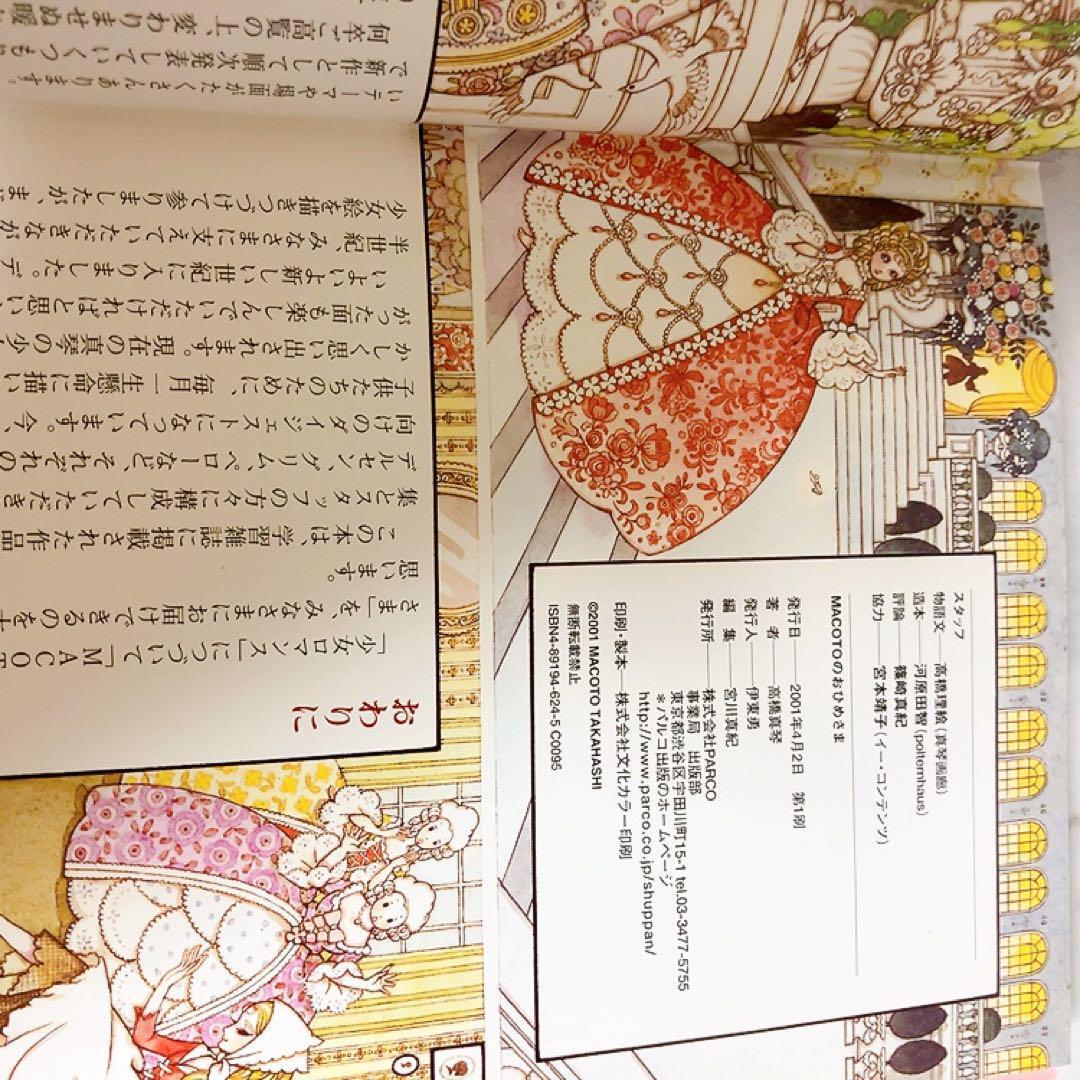 おわりに
「少女ロマンス」につづいて「MACOT
さま」を、みなさまにお届けできるのを十
思います。
この本は、学習雑誌に掲載された作品
集とスタッフの方々に構成していただき
デルセン、グリム、ペローなど、それぞれの
向けのダイジェストになっています。今、
子供たちのために、毎月一生懸命に描い
かしく思い出されます。現在の真琴の少
がった面も楽しんでいただければと思い、
いよいよ新しい世紀に入りました。デ
半世紀、みなさまに支えていただきなが
少女絵を描きつづけて参りましたが、ま
いテーマや場面がたくさんあります。
で新作として順次発表していくつも
何卒ご高覧の上、変わりませぬ暖
スタッフ
物語文―高橋理絵(真琴画廊)
造本―河原田智(polternhaus)
評論―篠崎真紀
協力―宮本靖子(イー・コンテンツ)
MACOTOのおひめさま
発行日―2001年4月2日 第1刷
著者―高橋真琴
発行人―伊東勇
編集―宮川真紀
発行所―株式会社PARCO
事業局 出版部
東京都渋谷区宇田川町15-1 tel.03-3477-5755
*パルコ出版のホームページ
http://www.parco.co.jp/shuppan/
印刷・製本―株式会社文化カラー印刷
©2001 MACOTO TAKAHASHI
無断転載禁止
ISBN4-89194-624-5 C0095